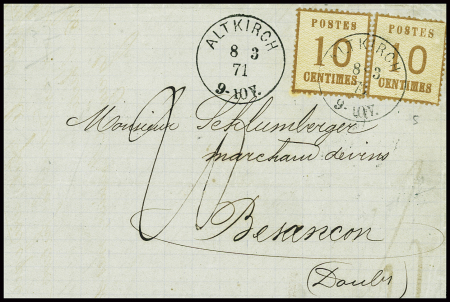 ALTKIRCH
8 3
71
9-10V.
POSTES
10
CENTIMES
POSTES
10
CENTIMES
ALTKIRCH
8 3
71
9-10V.
5
Monsieur Schlumberger
marchand de vins
Besancon
(Doubs)